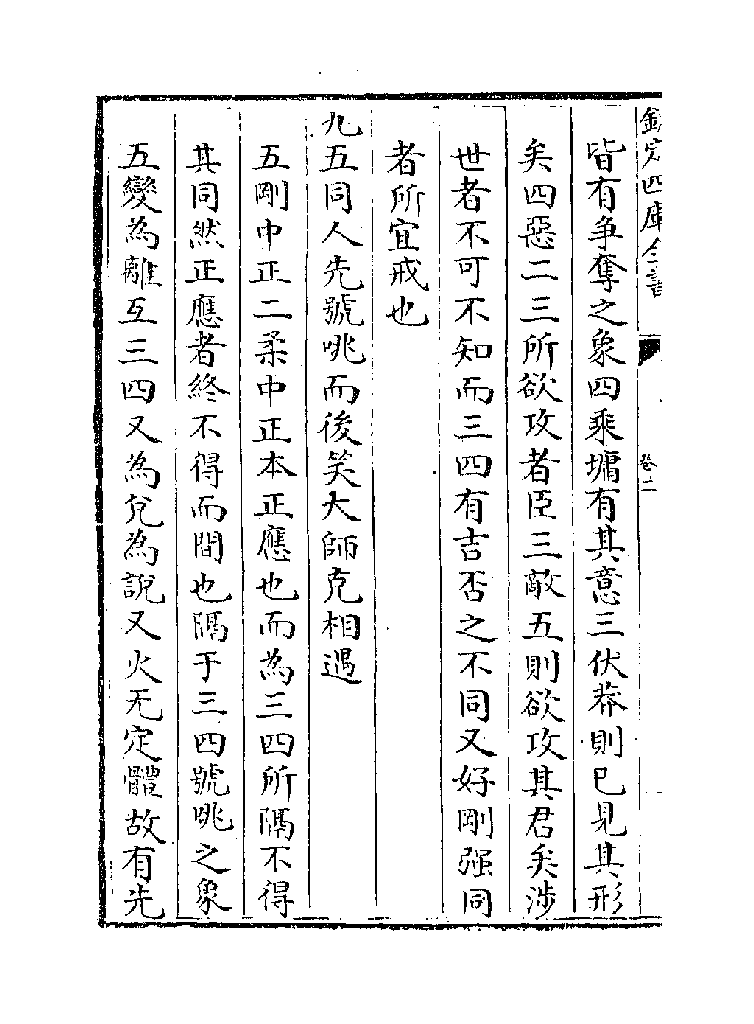 欽定四庫全書
卷二
皆有爭奪之象四乘墉有其意三伏莽則已見其形
矣四惡二三所欲攻者臣三敵五則欲攻其君矣涉
世者不可不知而三四有吉否之不同又好剛强同
者所宜戒也
九五同人先號咷而後笑大師克相遇
五剛中正二柔中正本正應也而為三四所隔不得
其同然正應者終不得而間也隔于三四號咷之象
五變為離互三四又為兌為說又火无定體故有先